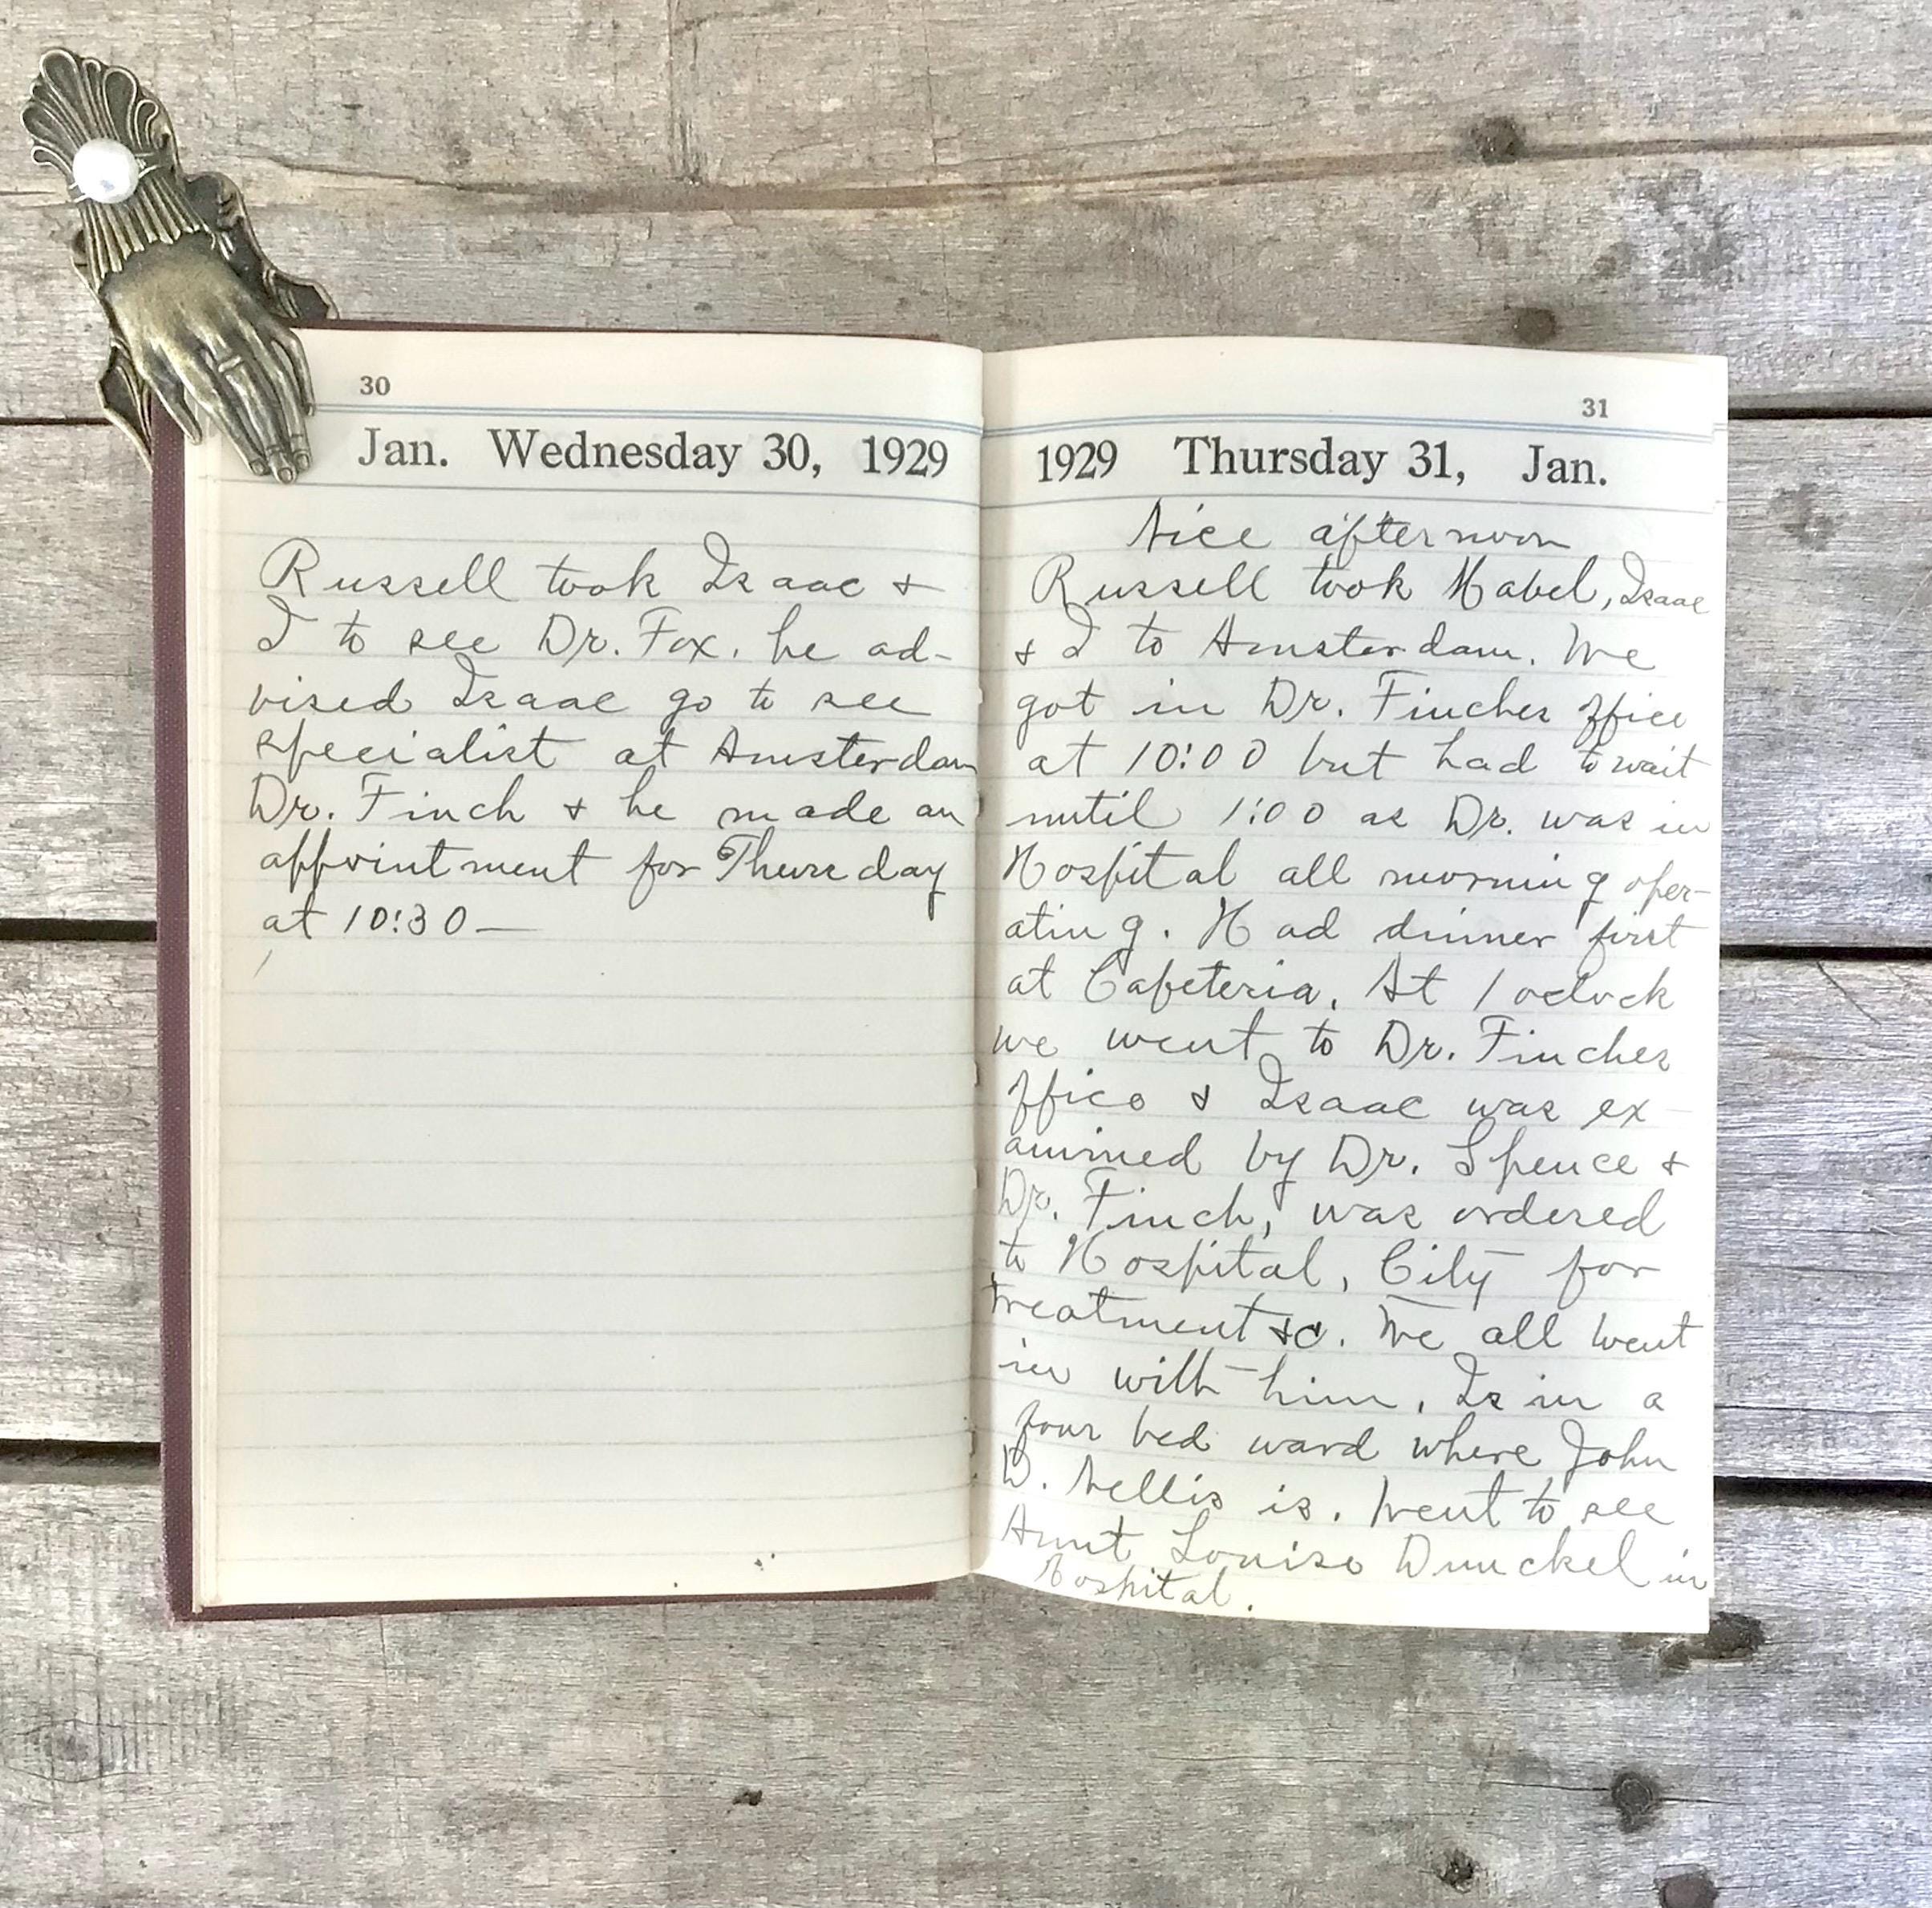 30
Jan. Wednesday 30, 1929
Russell took Isaac &
I to see Dr. Fox. he ad-
vised Isaac go to see
specialist at Amsterdam
Dr. Finch & he made an
appointment for Thursday
at 10:30—
31
1929 Thursday 31, Jan.
Nice afternoon
Russell took Mabel, Isaac
& I to Amsterdam. We
got in Dr. Finches office
at 10:00 but had to wait
until 1:00 as Dr. was in
Hospital all morning oper-
ating. Had dinner first
at Cafeteria. At 1 oclock
we went to Dr. Finches
office & Isaac was ex-
amined by Dr. Spence &
Dr. Finch, was ordered
to Hospital, City for
treatment &c. We all went
in with him. Is in a
four bed ward where John
D. Nellis is. Went to see
Aunt Louise Dunckel in
Hospital.